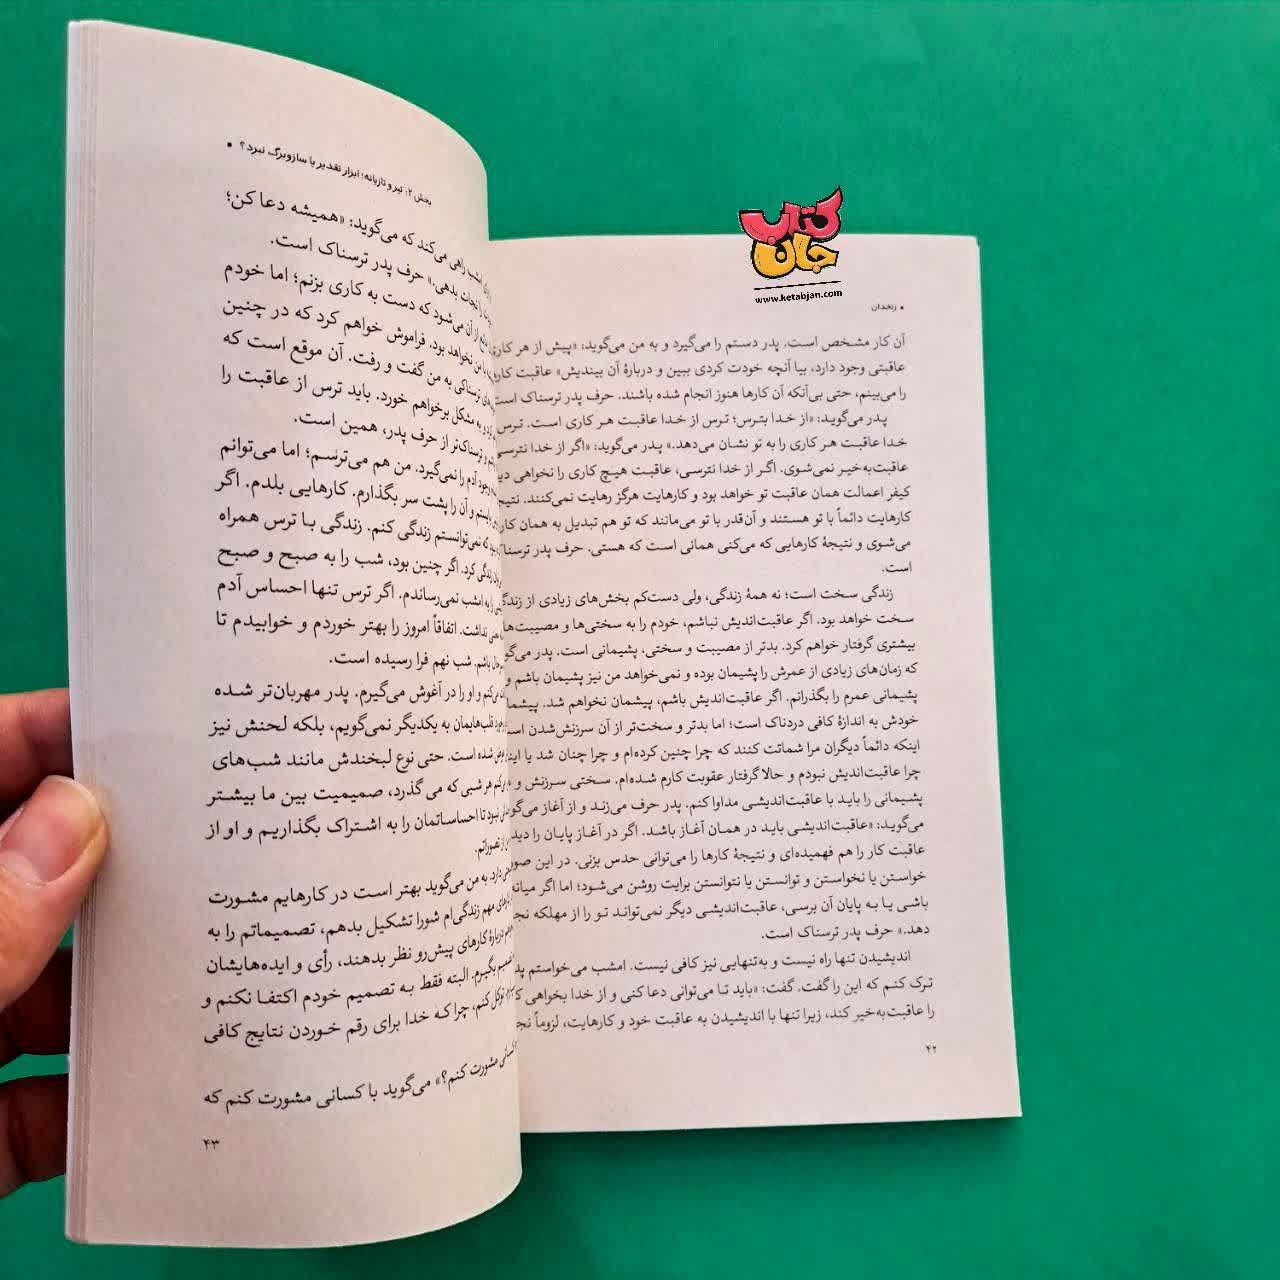 کتاب جان
www.ketabjan.com
• زنخدان
آن کار مشخص است. پدر دستم را می‌گیرد و به من می‌گوید: «پیش از هر کاری
عاقبتی وجود دارد، بیا آنچه خودت کردی ببین و دربارهٔ آن بیندیش» عاقبت کارها
را می‌بینم، حتی بی‌آنکه آن کارها هنوز انجام شده باشند. حرف پدر ترسناک است
پدر می‌گوید: «از خدا بترس؛ ترس از خدا عاقبت هر کاری است. ترس
خدا عاقبت هر کاری را به تو نشان می‌دهد.» پدر می‌گوید: «اگر از خدا نترسی
عاقبت‌به‌خیر نمی‌شوی. اگر از خدا نترسی، عاقبت هیچ کاری را نخواهی
کیفر اعمالت همان عاقبت تو خواهد بود و کارهایت هرگز رهایت نمی‌کنند.
کارهایت دائماً با تو هستند و آن‌قدر با تو می‌مانند که تو هم تبدیل به همان
می‌شوی و نتیجهٔ کارهایی که می‌کنی همانی است که هستی. حرف پدر
است.
زندگی سخت است؛ نه همهٔ زندگی، ولی دست‌کم بخش‌های زیادی از
سخت خواهد بود. اگر عاقبت‌اندیش نباشم، خودم را به سختی‌ها و
بیشتری گرفتار خواهم کرد. بدتر از مصیبت و سختی، پشیمانی است. پدر
که زمان‌های زیادی از عمرش را پشیمان بوده و نمی‌خواهد من نیز پشیمان باشم و
پشیمانی عمرم را بگذرانم. اگر عاقبت‌اندیش باشم، پشیمان نخواهم شد.
خودش به اندازهٔ کافی دردناک است؛ اما بدتر و سخت‌تر از آن سرزنش‌شدن
اینکه دائماً دیگران مرا شماتت کنند که چرا چنین کرده‌ام و چرا چنان شد یا
چرا عاقبت‌اندیش نبودم و حالا گرفتار عقوبت کارم شده‌ام. سختی سرزنش و
پشیمانی را باید با عاقبت‌اندیشی مداوا کنم. پدر حرف می‌زند و از آغاز
می‌گوید: «عاقبت‌اندیشی باید در همان آغاز باشد. اگر در آغاز پایان را
عاقبت کار را هم فهمیده‌ای و نتیجهٔ کارها را می‌توانی حدس بزنی. در این
خواستن یا نخواستن و توانستن یا نتوانستن برایت روشن می‌شود؛ اما اگر
باشی یا به پایان آن برسی، عاقبت‌اندیشی دیگر نمی‌تواند تو را از مهلکه
دهد.» حرف پدر ترسناک است.
اندیشیدن تنها راه نیست و به‌تنهایی نیز کافی نیست. امشب می‌خواستم
ترک کنم که این را گفت. گفت: «باید تا می‌توانی دعا کنی و از خدا بخواهی
را عاقبت‌به‌خیر کند، زیرا تنها با اندیشیدن به عاقبت خود و کارهایت، لزوماً
۴۲
بخش ۲: تیر و تازیانه؛ ابزار تقدیر یا سازوبرگ نبرد؟ •
امشب راهی می‌کند که می‌گوید: «همیشه دعا کن؛
را نجات بدهی.» حرف پدر ترسناک است.
از آن می‌شود که دست به کاری بزنم؛ اما خودم
با من نخواهد بود. فراموش خواهم کرد که در چنین
ترسناکی به من گفت و رفت. آن موقع است که
به مشکل برخواهم خورد. باید ترس از عاقبت را
و ترسناک‌تر از حرف پدر، همین است.
وجود آدم را نمی‌گیرد. من هم می‌ترسم؛ اما می‌توانم
بایستم و آن را پشت سر بگذارم. کارهایی بلدم. اگر
که نمی‌توانستم زندگی کنم. زندگی با ترس همراه
زندگی کرد. اگر چنین بود، شب را به صبح و صبح
را به امشب نمی‌رساندم. اگر ترس تنها احساس آدم
نداشت. اتفاقاً امروز را بهتر خوردم و خوابیدم تا
باشم. شب نهم فرا رسیده است.
می‌کنم و او را در آغوش می‌گیرم. پدر مهربان‌تر شده
قلب‌هایمان به یکدیگر نمی‌گویم، بلکه لحنش نیز
عوض شده است. حتی نوع لبخندش مانند شب‌های
هر شبی که می گذرد، صمیمیت بین ما بیشتر
نبود تا احساساتمان را به اشتراک بگذاریم و او از
از تصوراتم.
دارد. به من می‌گوید بهتر است در کارهایم مشورت
مهم زندگی‌ام شورا تشکیل بدهم، تصمیماتم را به
دربارهٔ کارهای پیش‌رو نظر بدهند، رأی و ایده‌هایشان
تصمیم بگیرم. البته فقط به تصمیم خودم اکتفا نکنم و
توکل کنم، چراکه خدا برای رقم خوردن نتایج کافی
مشورت کنم؟» می‌گوید با کسانی مشورت کنم که
۴۳